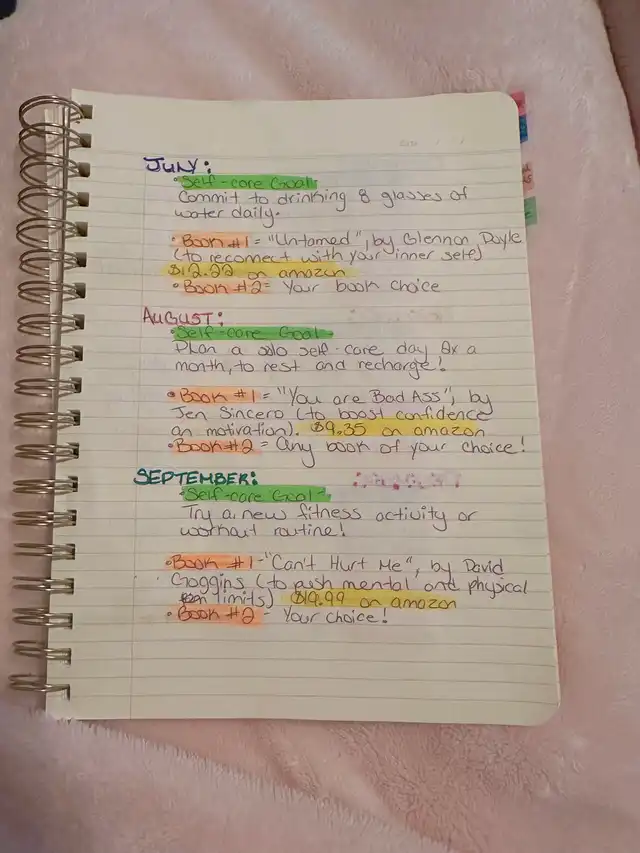 Date / /
JULY:
• Self-care Goal
Commit to drinking 8 glasses of
water daily.
• Book #1 = "Untamed", by Glennon Doyle
(to reconnect with your inner self)
$12.22 on amazon
• Book #2 = Your book choice
AUGUST:
• Self-care Goal -
Plan a solo self-care day 2x a
month, to rest and recharge!
• Book #1 = "You are Bad Ass", by
Jen Sincero (to boost confidence
an motivation). $9.35 on amazon
• Book #2 = Any book of your choice!
SEPTEMBER:
• Self-care Goal -
Try a new fitness activity or
workout routine!
• Book #1 - "Can't Hurt Me", by David
Goggins (to push mental and physical
limits) $19.99 on amazon
• Book #2 - Your choice!